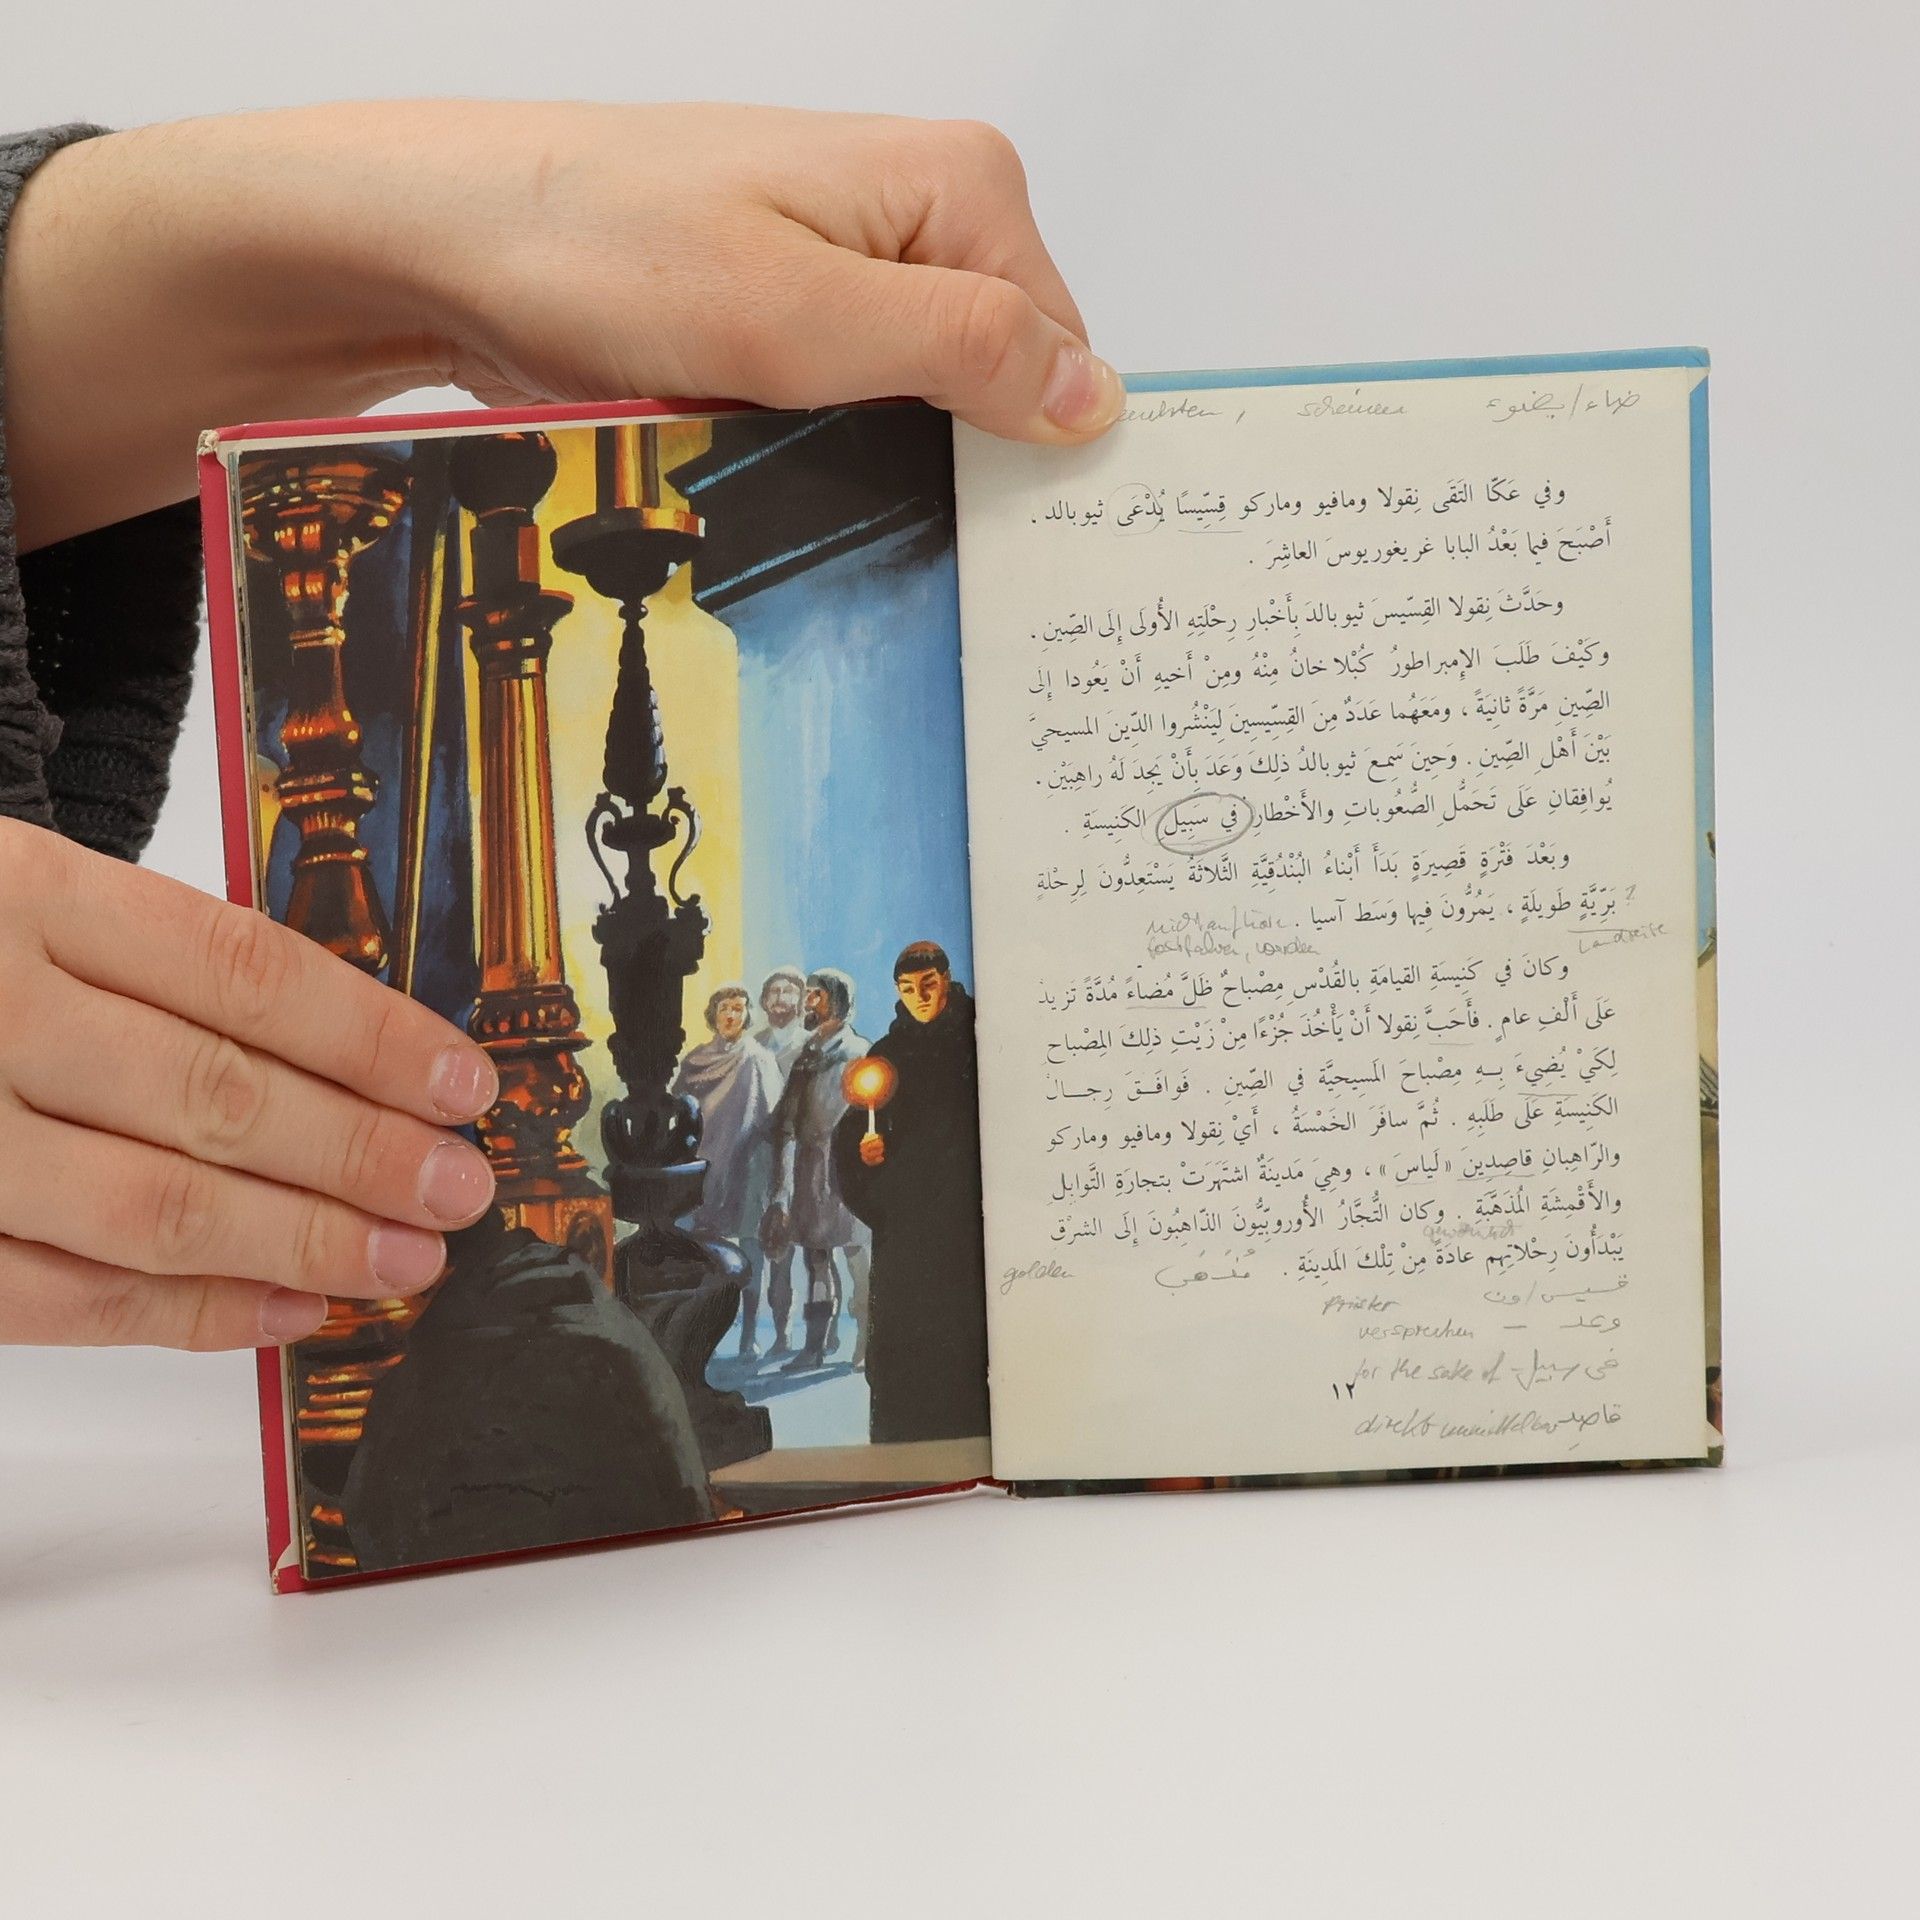 scheinen ضاء/يضوء
وفي عَكّا التَقَى نِقولا ومافيو وماركو قِسّيسًا يُدْعَى ثيوبالد .
أَصْبَحَ فيما بَعْدُ البابا غريغوريوسَ العاشِرَ .
وحَدَّثَ نِقولا القِسّيسَ ثيوبالدَ بِأَخْبارِ رِحْلَتِهِ الأُولَى إِلَى الصِّينِ .
وكَيْفَ طَلَبَ الإِمبراطورُ كُبْلا خانُ مِنْهُ ومِنْ أَخيهِ أَنْ يَعُودا إِلَى
الصِّينِ مَرَّةً ثانِيَةً ، ومَعَهُما عَدَدٌ مِنَ القِسِّيسِينَ لِيَنْشُروا الدِّينَ المسيحيَّ
بَيْنَ أَهْلِ الصِّينِ . وَحِينَ سَمِعَ ثيوبالدُ ذلِكَ وَعَدَ بِأَنْ يَجِدَ لَهُ راهِبَيْنِ .
يُوافِقانِ عَلَى تَحَمُّلِ الصُّعُوباتِ والأَخْطارِ في سَبِيلِ الكَنِيسَةِ .
وبَعْدَ فَتْرَةٍ قَصِيرَةٍ بَدَأَ أَبْناءُ البُنْدُقِيَّةِ الثَّلاثَةُ يَسْتَعِدُّونَ لِرِحْلَةٍ
بَرِّيَّةٍ طَوِيلَةٍ ، يَمُرُّونَ فِيها وَسَط آسيا .
Landreise
وكانَ في كَنِيسَةِ القيامَةِ بالقُدْسِ مِصْباحٌ ظَلَّ مُضاءً مُدَّةً تَزيدُ
عَلَى أَلْفِ عامٍ . فأَحَبَّ نِقولا أَنْ يَأْخُذَ جُزْءًا مِنْ زَيْتِ ذلِكَ المِصْباحِ
لِكَيْ يُضِيءَ بِـهِ مِصْباحَ المَسِيحِيَّة في الصِّينِ . فَوافَـقَ رِجـالُ
الكَنِيسَةِ عَلَى طَلَبِهِ . ثُمَّ سافَرَ الخَمْسَةُ ، أَيْ نِقولا ومافيو وماركو
والرّاهِبانِ قاصِدِينَ «لَياسَ» ، وهِيَ مَدينَةٌ اشتَهَرَتْ بتجارَةِ التَّوابِلِ
والأَقْمِشَةِ المُذَهَّبَةِ . وكان التُّجَّارُ الأُوروبِّيُّونَ الذّاهِبُونَ إِلَى الشرْقِ
يَبْدَأُونَ رِحْلاتِهِم عادَةً مِنْ تِلْكَ المَدِينَةِ .
golden مُذَهَّب
Priester قسيس/ون
versprechen – وعد
for the sake of – في سبيل
١٢
direkt unmittelbar قاصِد